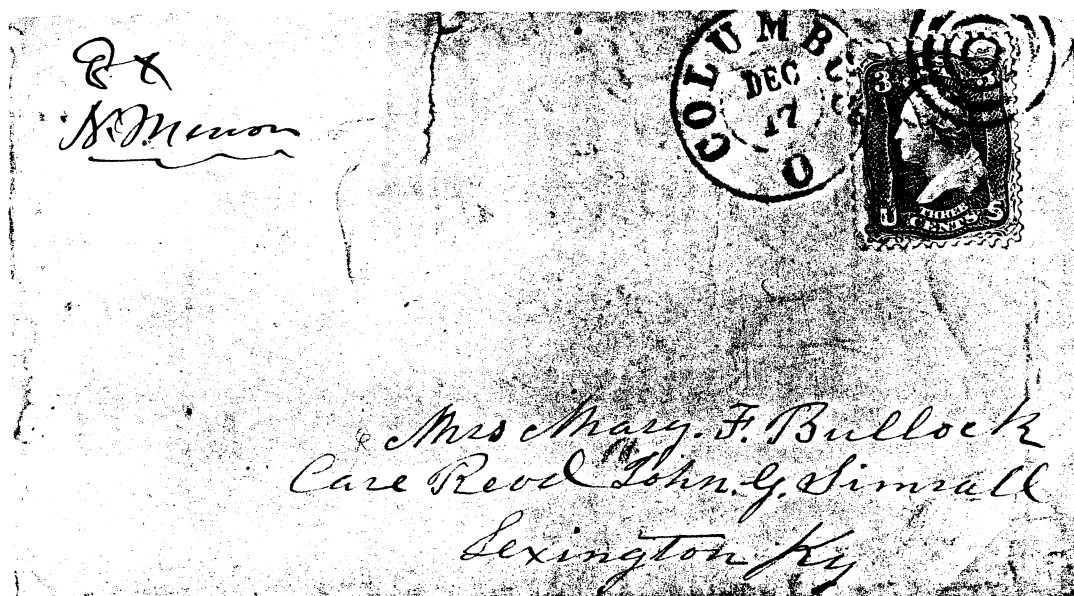 Ex
N. Merion
COLUMB O
DEC
17
3
U S
THREE
CENTS
Mrs Mary. F. Bullock
Care Revd John. G. Simrall
Lexington Ky